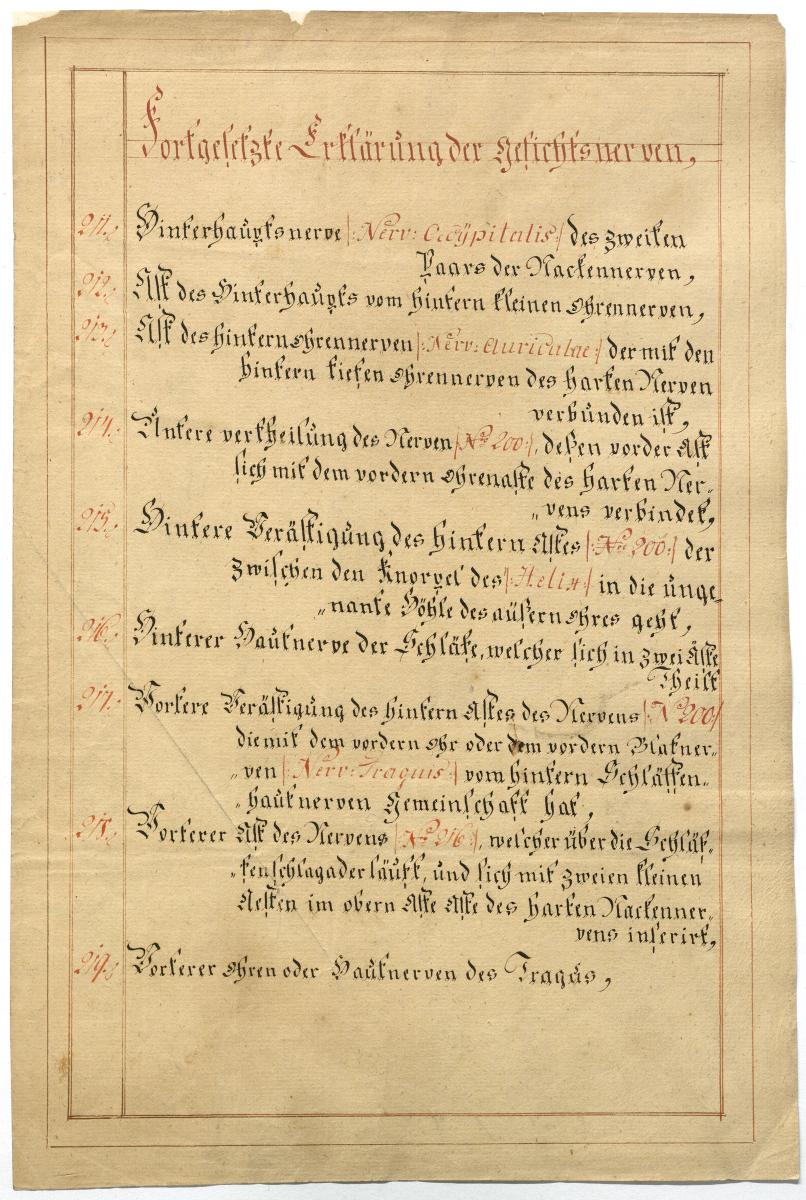 Fortgesetzte Erklärung der Gesichtsnerven,
211. Hinterhauptsnerve |: Nerv: Occÿpitalis :| des zweiten
Paars der Nackennerven,
212. Ast des Hinterhaupts vom hintern kleinen Ohrennerven,
213. Ast des hintern Ohrennerven |: Nerv: auriculae :| der mit den
hintern tiefen Ohrennerven des harten Nerven
verbunden ist,
214. Untere vertheilung des Nerven |: No 200 :|, deßen vorder Ast
sich mit dem vordern Ohrenaste des harten Ner„
„vens verbindet,
215. Hintere Verästigung des hintern Astes |: No 200 :| der
zwischen den Knorpel des |: Helix :| in die unge„
„nante Höhle des äußern Ohres geht,
216. Hinterer Hautnerve der Schläfe, welcher sich in zwei Äste
Theilt
217. Vortere Verästigung des hintern Astes des Nervens |: No 200 :|
die mit dem vordern Ohr oder dem vordern Blatner„
„ven |: Nerv: Traguis :| vom hintern Schläffen„
„hautnerven Gemeinschaft hat,
218. Vorterer Ast des Nervens |: No 216 :|, welcher über die Schläf„
„fenschlagader läuft, und sich mit zweien kleinen
Aesten im obern Aste Aste des harten Nackenner„
vens inserirt,
219. Vorterer Ohren oder Hautnerven des Tragus,